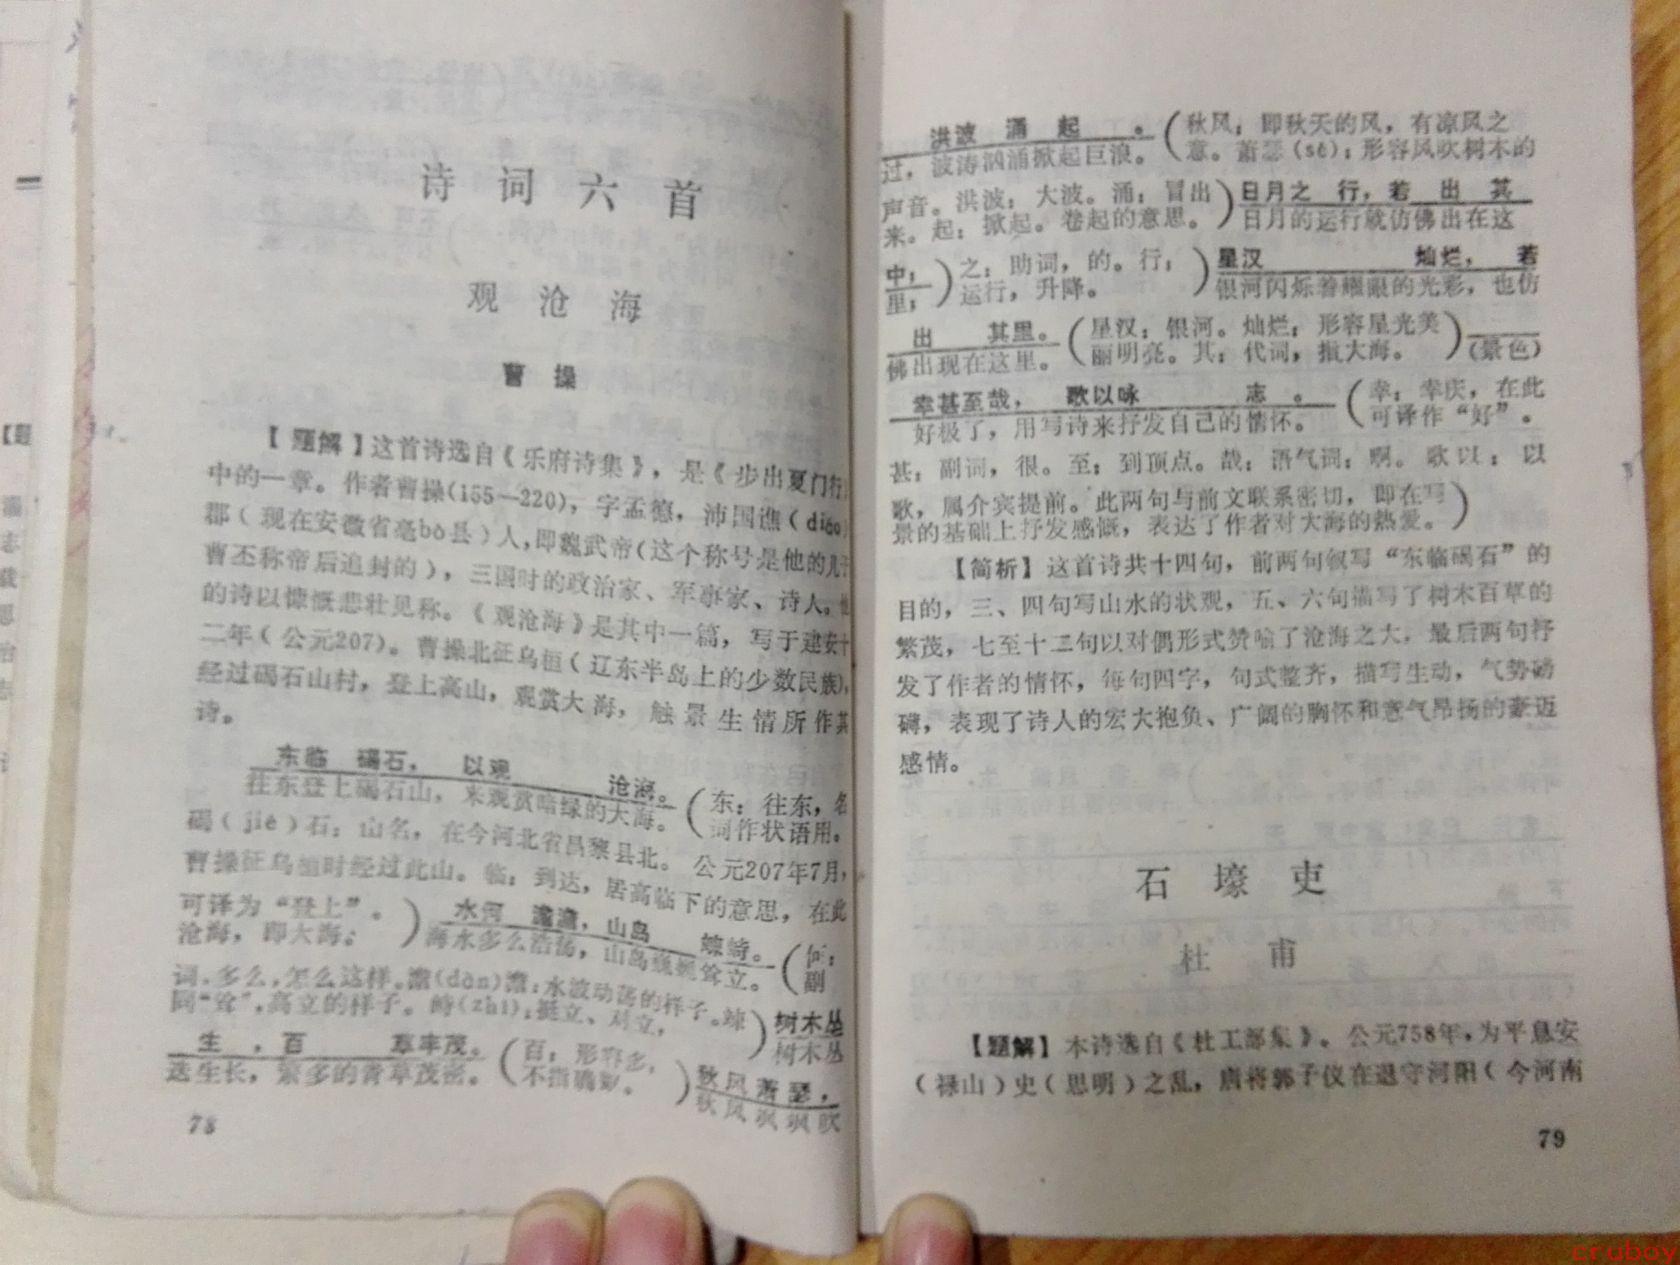 诗词六首
观沧海
曹操
【题解】这首诗选自《乐府诗集》，是《步出夏门行》
中的一章。作者曹操(155—220)，字孟德，沛国谯(
郡（现在安徽省亳bò县）人，即魏武帝（这个称号是他的儿子
曹丕称帝后追封的），三国时的政治家、军事家、诗人。他
的诗以慷慨悲壮见称。《观沧海》是其中一篇，写于建安十
二年（公元207)。曹操北征乌桓（辽东半岛上的少数民族)，
经过碣石山村，登上高山，观赏大海，触景生情所作其
诗。
东临 碣石， 以观 沧海。
往东登上碣石山，来观赏暗绿的大海。
（东：往东，名
词作状语用。
碣（jié）石：山名，在今河北省昌黎县北。公元207年7月，
曹操征乌桓时经过此山。临：到达，居高临下的意思，在此
可译为“登上”。
沧海，即大海；）
水何 澹澹，山岛 竦峙。
海水多么浩荡，山岛巍巍耸立。
（何：
副
词，多么，怎么这样。澹(dàn)澹：水波动荡的样子。竦
同“耸”，高立的样子。峙(zhì)：挺立、对立，）
树木丛
树木丛
生 ，百 草丰茂。
迭生长，繁多的青草茂密。
（百：形容多，
不指确数。）
秋风萧瑟，
秋风飒飒吹
78
洪波 涌 起 。
过，波涛汹涌掀起巨浪。
（秋风：即秋天的风，有凉风之
意。萧瑟(sè)：形容风吹树木的
声音。洪波：大波。涌：冒出
来。起：掀起。卷起的意思。）
日月之 行，若 出 其
日月的运行就仿佛出在这
中；
里；
）之：助词，的。行：
运行，升降。）
星汉 灿烂， 若
银河闪烁着耀眼的光彩，也仿
出 其里。
佛出现在这里。
（星汉：银河。灿烂：形容星光美
丽明亮。其：代词，指大海。）
(景色)
幸甚至哉， 歌以咏 志 。
好极了，用写诗来抒发自己的情怀。
（幸：幸庆，在此
可译作“好”。
甚：副词，很。至：到顶点。哉：语气词：啊。歌以：以
歌，属介宾提前。此两句与前文联系密切，即在写
景的基础上抒发感慨，表达了作者对大海的热爱。）
【简析】这首诗共十四句，前两句叙写“东临碣石”的
目的，三、四句写山水的状观，五、六句描写了树木百草的
繁茂，七至十二句以对偶形式赞喻了沧海之大，最后两句抒
发了作者的情怀，每句四字，句式整齐，描写生动，气势磅
礴，表现了诗人的宏大抱负、广阔的胸怀和意气昂扬的豪迈
感情。
石壕吏
杜甫
【题解】本诗选自《杜工部集》。公元758年，为平息安
（禄山）史（思明）之乱，唐将郭子仪在退守河阳（今河南
79
cruboy